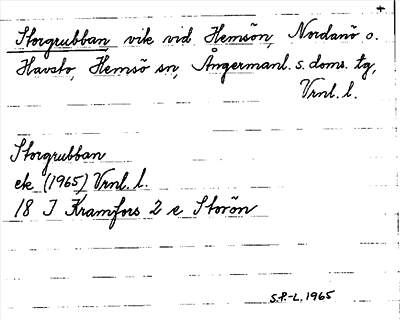 Storgrubban vik vid Hemsön, Nordanö o.
Havsto, Hemsö sn, Ångermanl. s. doms. tg,
Vrnl. l.
Storgrubban
ek (1965) Vrnl. l.
18 I Kramfors 2 e Storön
S.P.-L. 1965